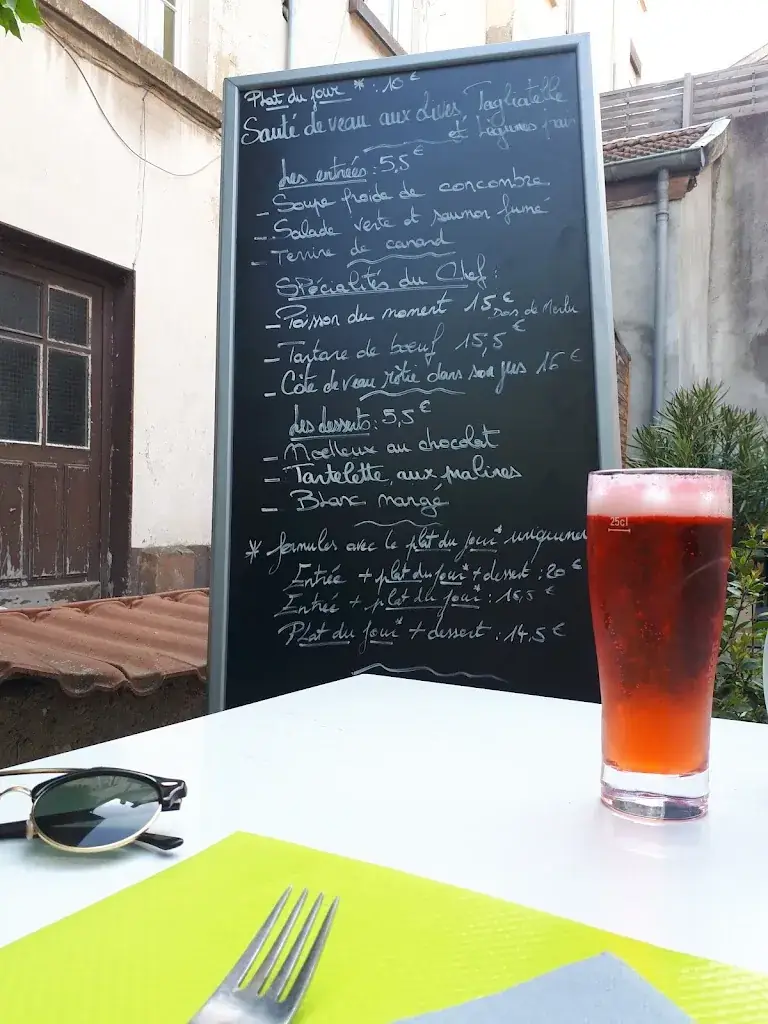 Plat du jour * : 10 €
Sauté de veau aux olives, Tagliatelle
et légumes
Les entrées : 5,5 €
- Soupe froide de concombre
- Salade verte et saumon fumé
- Terrine de canard
Spécialités du Chef :
- Poisson du moment 15 € Dos de Merlu
- Tartare de boeuf 15,5 €
- Côte de veau rôtie dans son jus 16 €
Les desserts : 5,5 €
- Moelleux au chocolat
- Tartelette aux pralines
- Blanc mangé
* formules avec le plat du jour* uniquement
Entrée + plat du jour* + dessert : 20 €
Entrée + plat du jour* : 15,5 €
Plat du jour* + dessert : 14,5 €
25cl